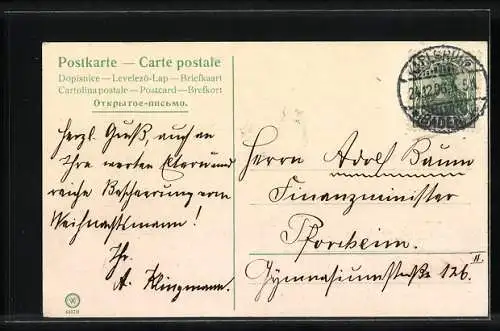 Postkarte — Carte postale
Dopisnice — Levelező-Lap — Briefkaart
Cartolina postale — Postcard — Brefkort
Открытое-письмо.
Herzl. Gruß, auch an
Ihre werten Eltern und
reiche Bescheerung vom
Weihnachtsmann!
Ihr
A. Klingmann.
KARLSRUHE
24.12.06. 5
(BADEN)
Herrn Adolf Baum
Finanzminister
Pforzheim.
Gymnasiumstraße 126 II